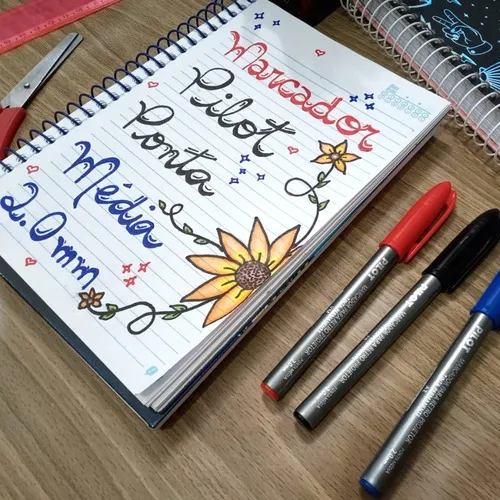 Marcador
Pilot
Ponta
Média
2.0mm
PILOT
PILOT
PILOT